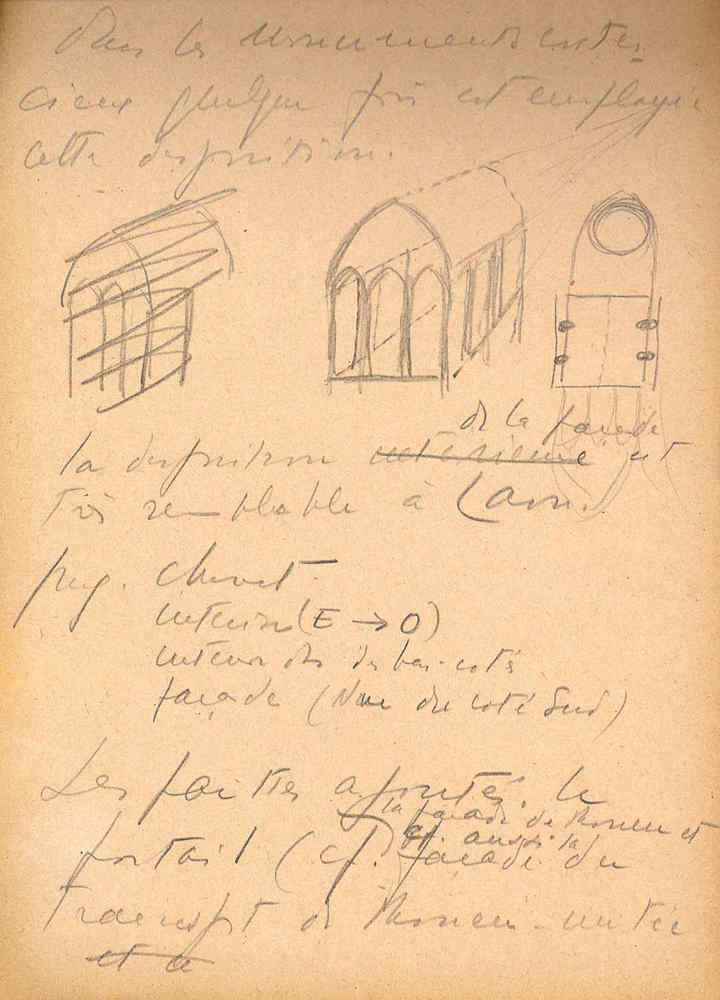 Dans les monuments cister
ciens quelque fois est employée
cette disposition.
de la façade
la disposition intérieure est
très semblable à Laon.
proj. chevet
intérieur (E → O)
intérieur des bas-cotés
façade (Vue du coté Sud)
Les parties ajoutés. le
la façade de Rouen et
aussi la
portail (cf. façade du
Transept de Rouen
et a